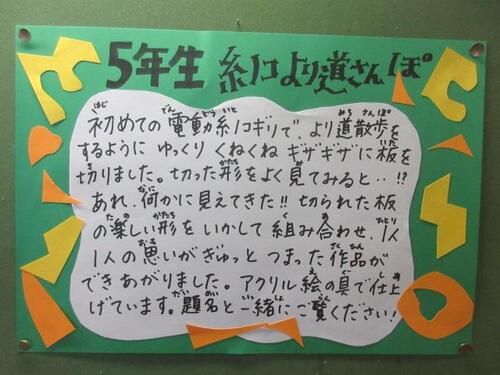 5年生 糸ノコより道さんぽ
初めての電動糸ノコギリで、より道散歩を
するように ゆっくり くねくね ギザギザに板を
切りました。切った形をよく見てみると‥!?
あれ、何かに見えてきた!! 切られた板
の楽しい形をいかして組み合わせ、1人
1人の思いがぎゅっと つまった作品が
できあがりました。アクリル絵の具で仕上
げています。題名と ご一緒に ご覧ください!